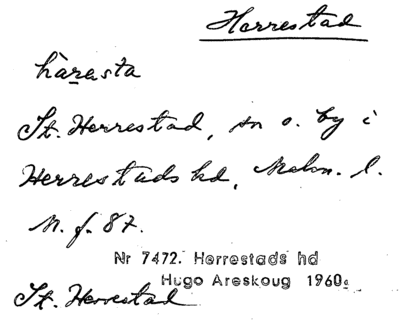 Herrestad
hàrasta
St. Herrestad, sn o. by i
Herrestads hd, Malm. l.
M. f. 87.
Nr 7472. Herrestads hd
Hugo Areskoug 1960.
St. Herrestad